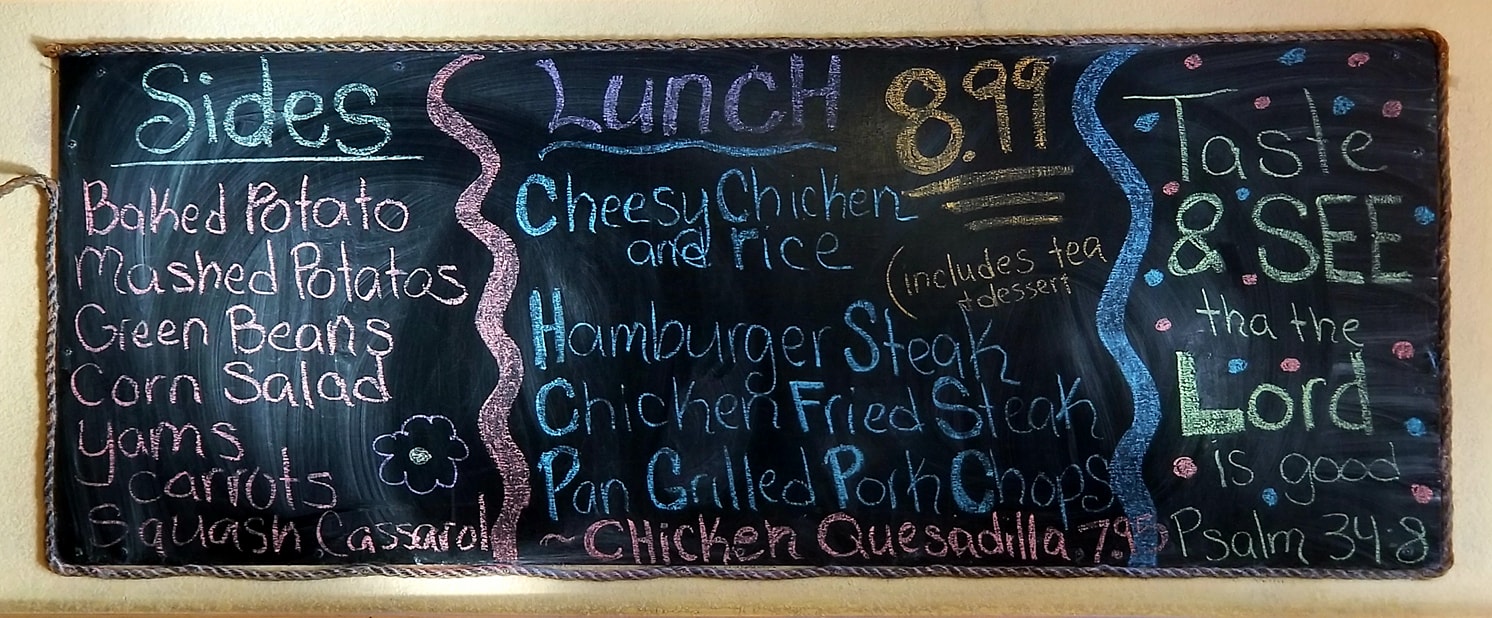 Sides
Baked Potato
Mashed Potatos
Green Beans
Corn Salad
Yams
Carrots
Squash Cassarol
Lunch 8.99
Cheesy Chicken
and rice
(includes tea
+ dessert
Hamburger Steak
Chicken Fried Steak
Pan Grilled Pork Chops
~ CHicken Quesadilla 7.95
Taste
& SEE
tha the
Lord
is good
Psalm 34:8